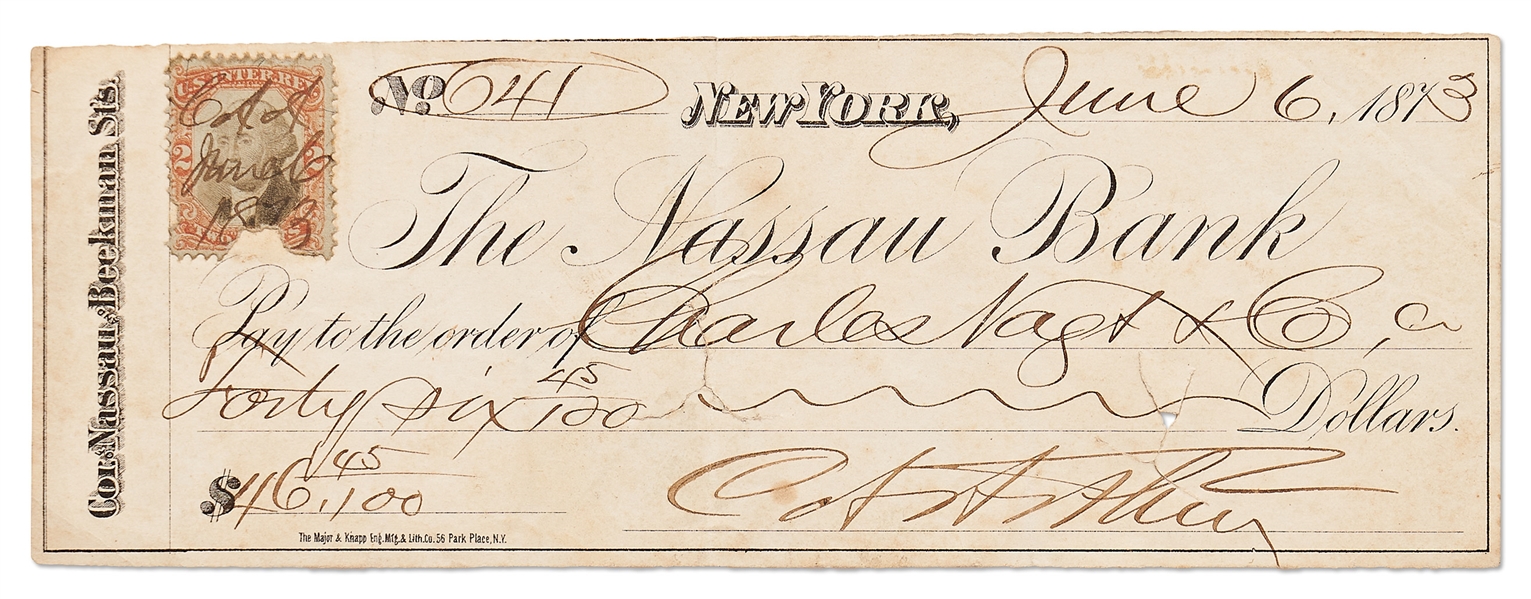 Cor. Nassau and Beekman Sts.
U.S. INTER. REV.
2 2
C A A
June 6
1873
No. 641 NEW YORK, June 6, 1873
The Nassau Bank
Pay to the order of Charles Vogt & Co,
Forty six 45/100 Dollars.
$46.45/100 C A Arthur
The Major & Knapp Eng. Mfg. & Lith. Co. 56 Park Place, N.Y.